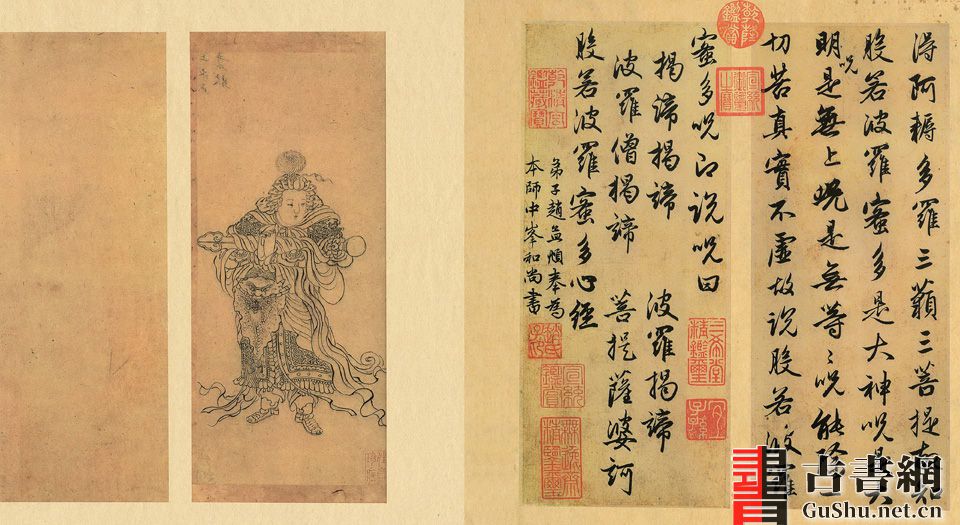 得阿耨多羅三藐三菩提故知
般若波羅蜜多是大神呪是大
明呪是無上呪是無等〻呪能除一
切苦真實不虛故說般若波羅
蜜多呪即說呪曰
揭諦揭諦 波羅揭諦
波羅僧揭諦 菩提薩婆訶
般若波羅蜜多心經
弟子趙孟頫奉為
本師中峯和尚書
乾隆鑑賞
三希堂精鑑璽
宜子孫
宣統鑑賞
無逸齋精鑑璽
古書網
GuShu.net.cn